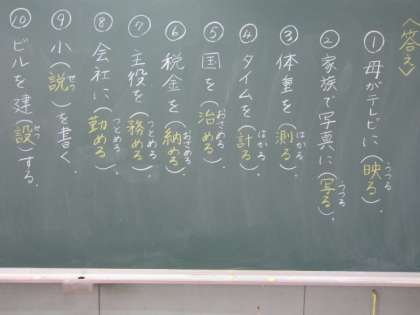 〈答え〉
① 母がテレビに(映る)。
うつる
② 家族で写真に(写る)。
うつる
③ 体重を(測る)。
はかる
④ タイムを(計る)。
はかる
⑤ 国を(治める)。
おさめる
⑥ 税金を(納める)。
おさめる
⑦ 主役を(務める)。
つとめる
⑧ 会社に(勤める)。
つとめる
⑨ 小(説)を書く。
せつ
⑩ ビルを建(設)する。
せつ